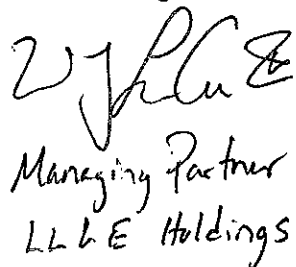 Managing Partner
LLLE Holdings